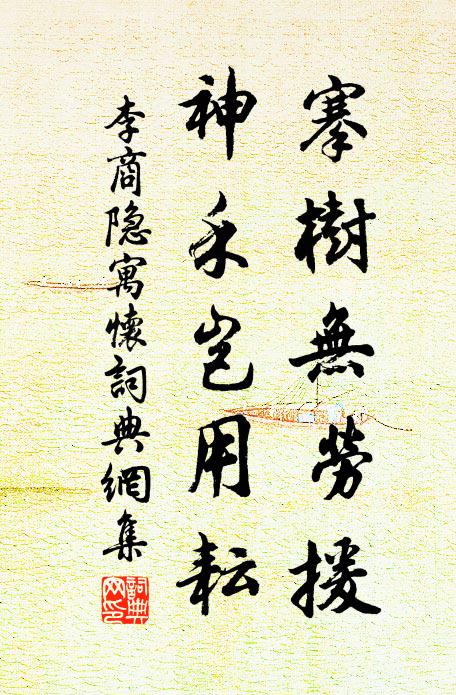 搴樹無勞援
神禾岂用耘
李商隐寓懷詞典網集
詞典
网印